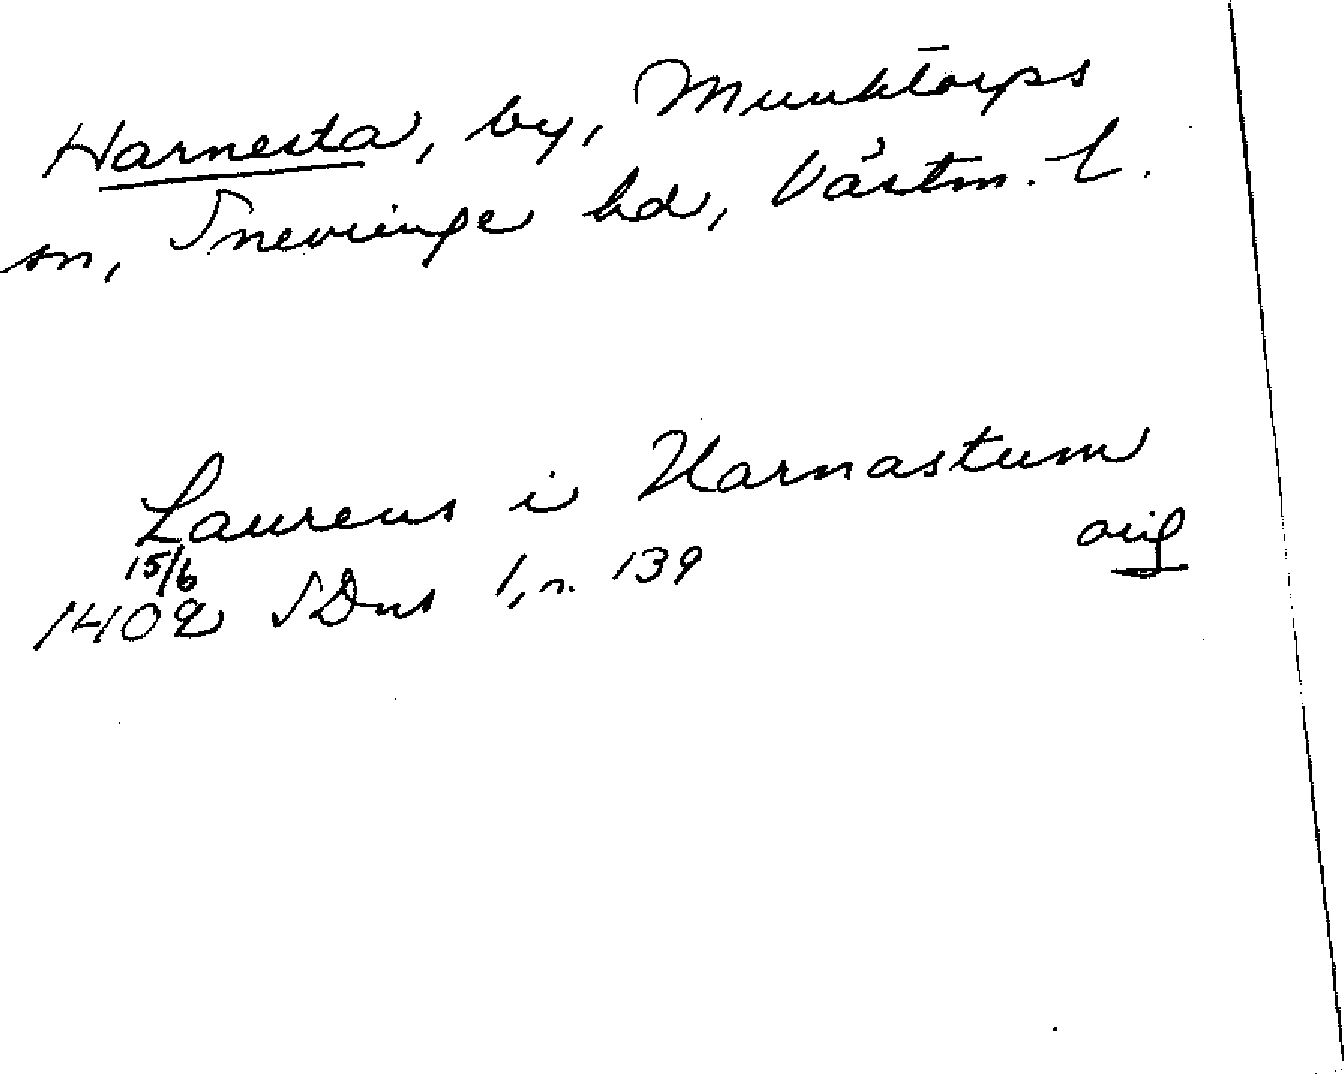 Harnesta, by, Munktorps
sn, Snevringe hd, Västm. l.
Laurens i Harnastum
orig
15/6
1402 SDns 1, n. 139